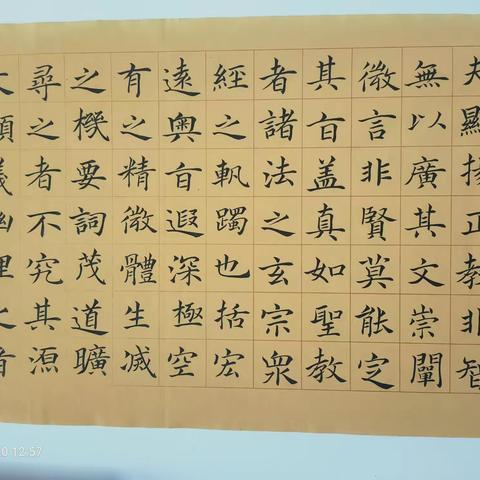 夫顯揚正教非智
無以廣其文崇闡
微言非賢莫能定
其旨盖真如聖教
者諸法之玄宗衆
經之軌躅也括宏
遠奥旨遐深極空
有之精微體生滅
之機要詞茂道曠
尋之者不究其源
文顯義幽理之者
0 12:57